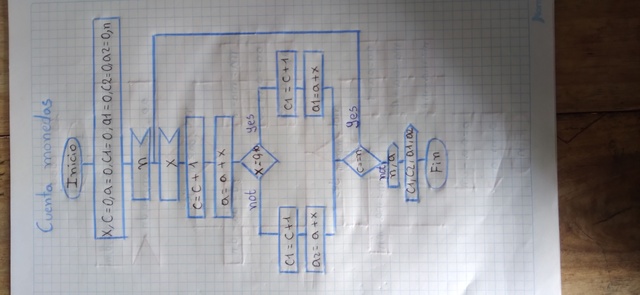 Cuenta monedas
Inicio
X, C=0, a=0, C1=0, a1=0, C2=0, a2=0, n
n
X
C=C+1
a=a+x
not
yes
C1=C+1
C1=C+1
a2=a+x
a1=a+x
C==n
yes
not
n, a
C1, C2, a1, a2
Fin